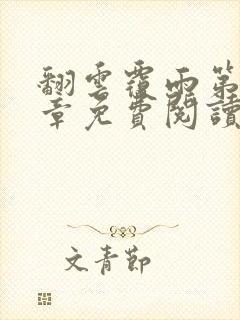 翻雲覆雨第
章免費閱讀
文青節